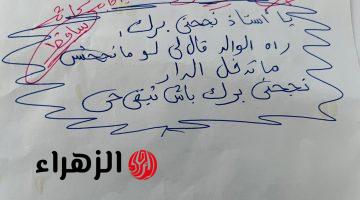 يا أستاذ نجحني برك
راه الوالد قال لي لو مانجحتش
ماتدخل الدار
نجحني برك باش نبقى حي
الزهراء